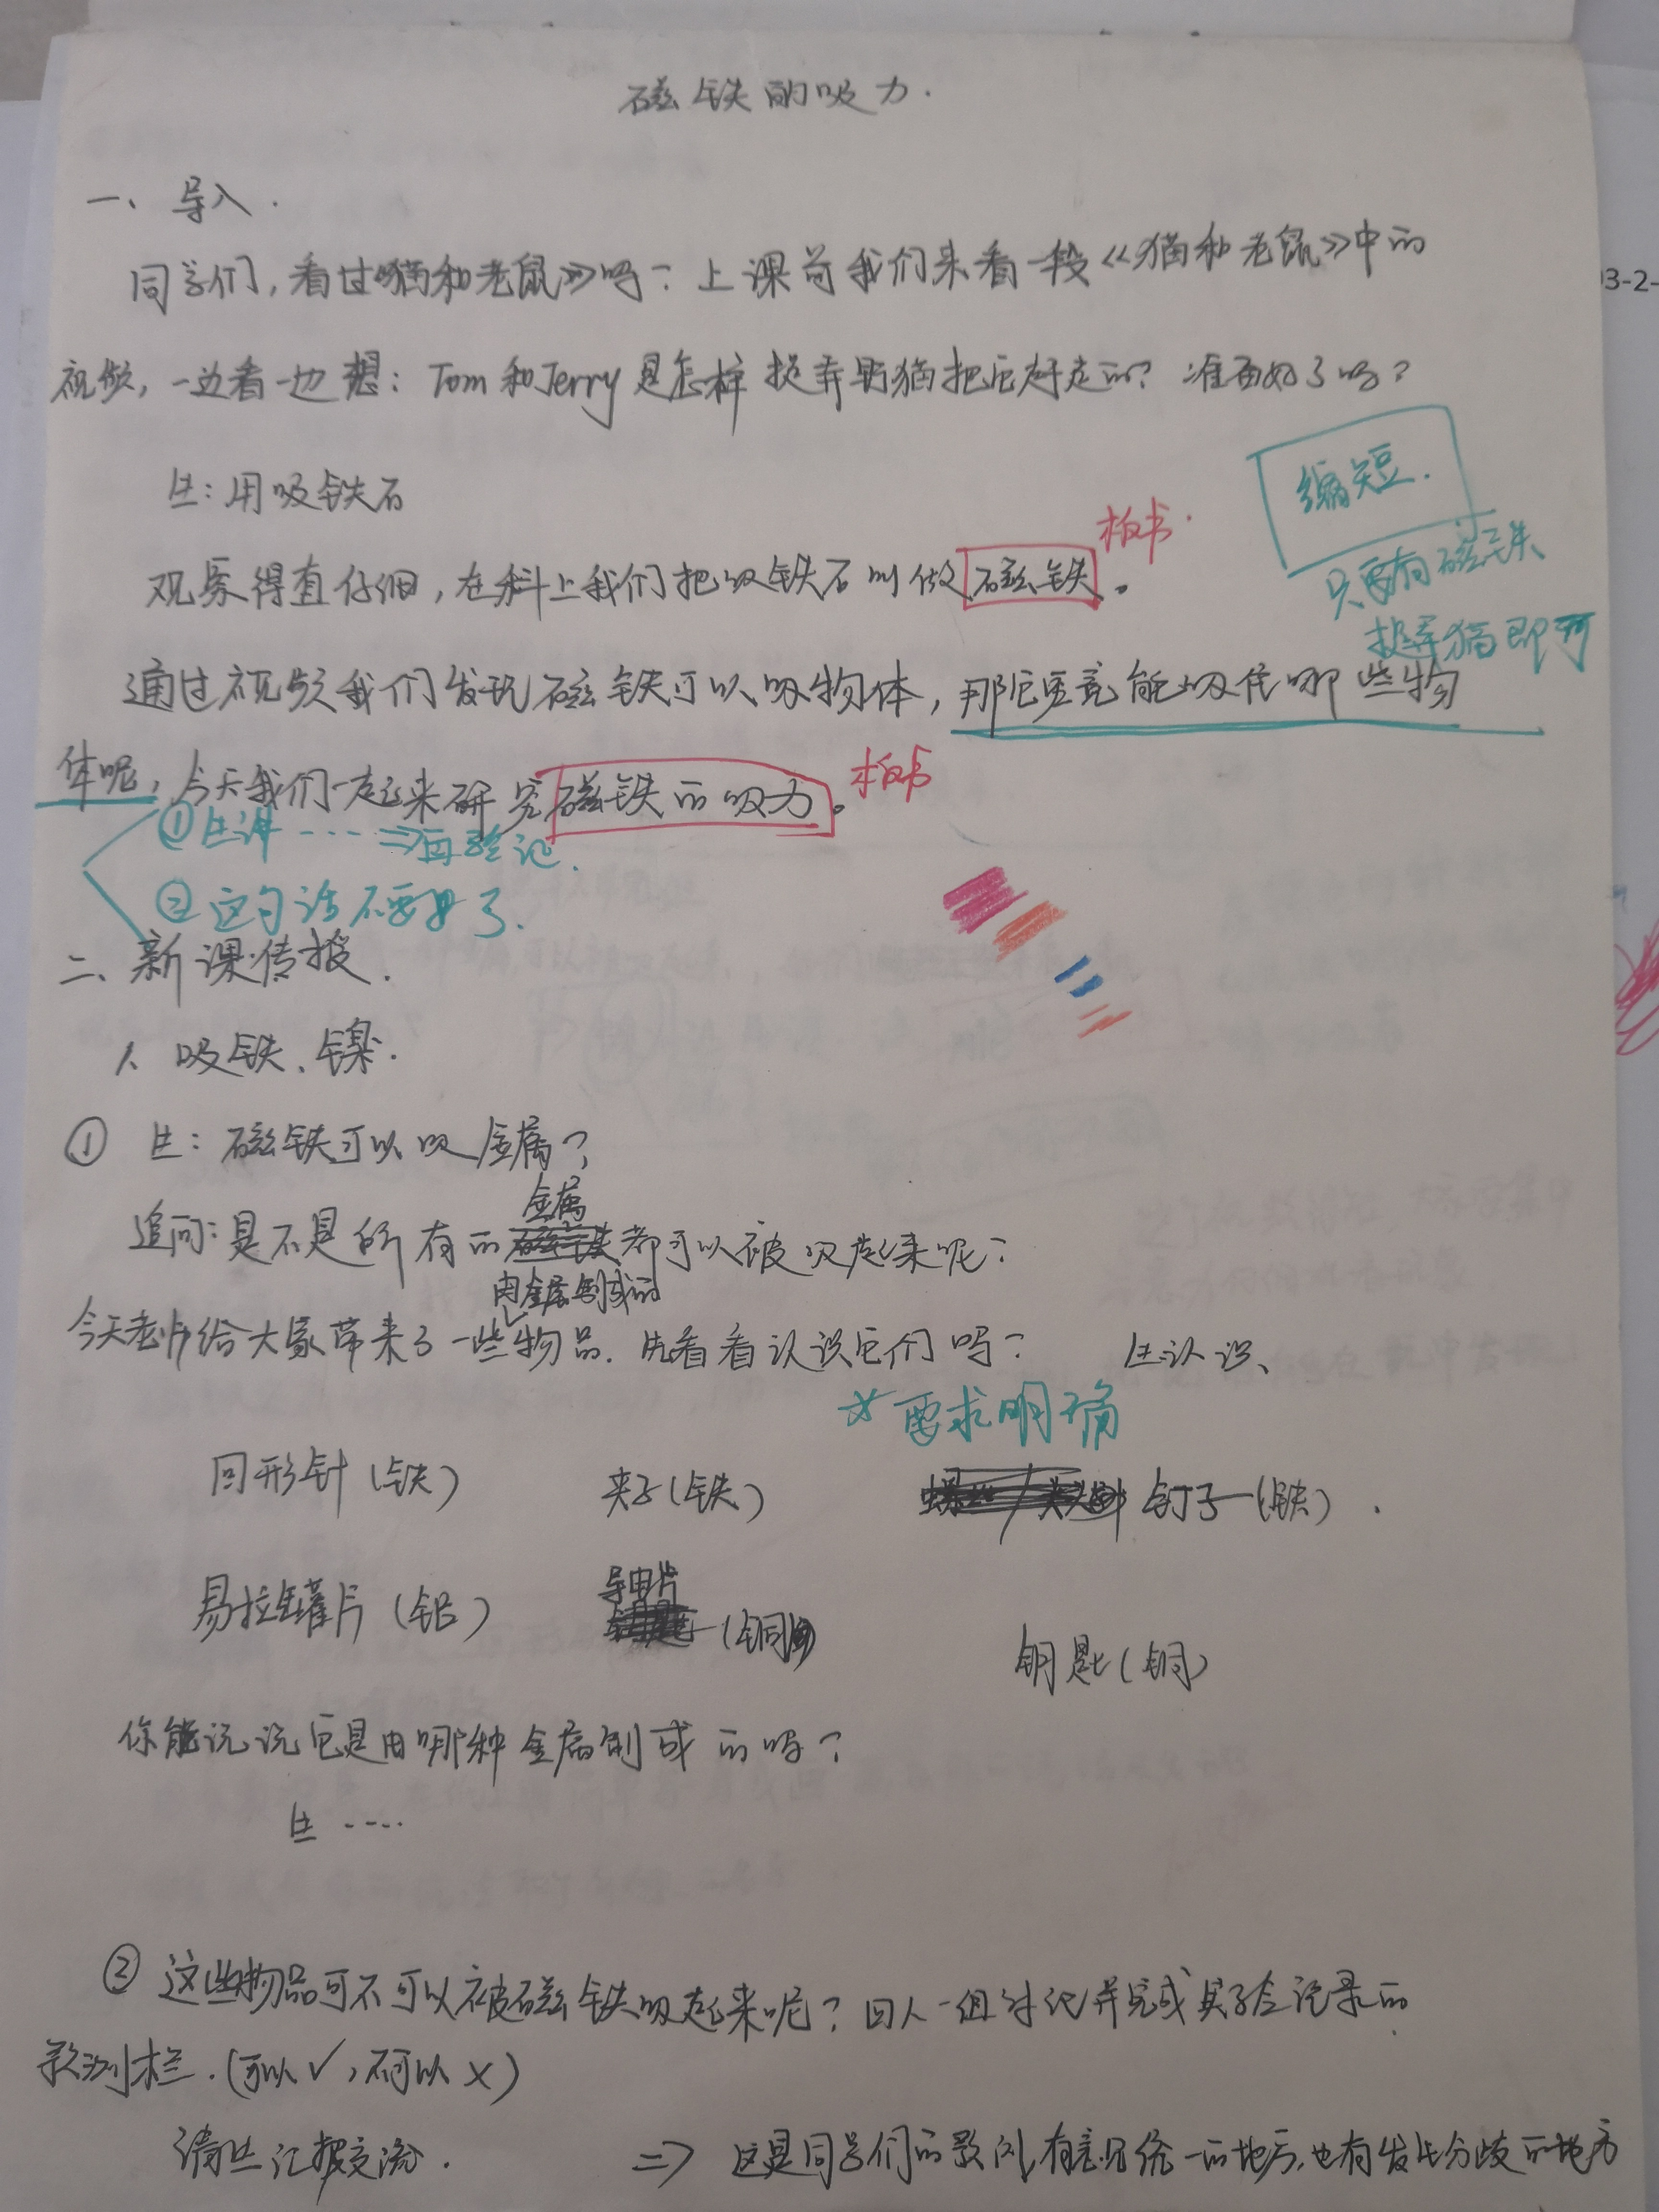 磁铁的吸力.
一、导入.
同学们,看过《猫和老鼠》吗?上课前我们来看一段《猫和老鼠》中的
视频,一边看一边想:Tom和Jerry是怎样捉弄野猫把它赶走的?准备好了吗?
生:用吸铁石
缩短.
板书.
观察得真仔细,在科上我们把吸铁石叫做磁铁。
只要有磁铁
捉弄猫即可
通过视频我们发现磁铁可以吸物体,那它究竟能吸住哪些物
体呢,今天我们一起来研究磁铁的吸力。
板书
①生讲····⇒再总记.
②这句话不要具了.
二、新课传授.
1、吸铁、镍.
① 生:磁铁可以吸金属?
金属
追问:是不是所有的都可以被吸起来呢?
由金属制成的
今天老师给大家带来了一些物品.先看看认识它们吗? 生认识、
☆要求明确
回形针(铁) 夹子(铁) 钉子(铁).
导电片
易拉罐片(铝) (铜) 钥匙(铜)
你能说说它是由哪种金属制成的吗?
生····
② 这些物品可不可以被磁铁吸起来呢?四人一组讨论并完成实验记录的
预测栏.(可以✓,不可以×)
请生汇报交流. ⇒ 这是同学们的预测,有意见统一的地方,也有发生分歧的地方
3-2-